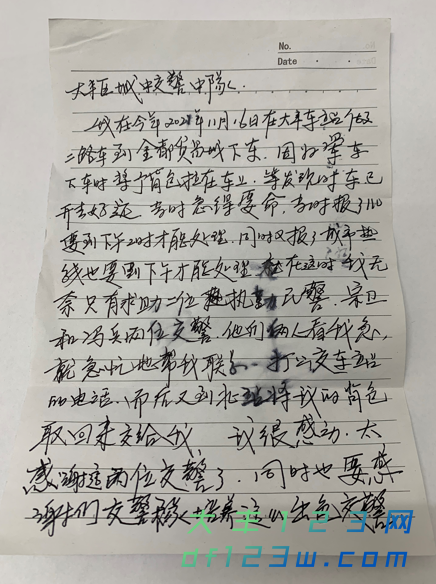 No.
Date
大丰区城中交警中队:
我在今年2021年11月16日在大丰车站做
二路车到金都货易城下车.因为晕车
下车时将手背包拉在车上.等发现时车已
开走好远.当时急得要命,当时报了110
要到下午2时才能处理.同时又报了城市热
线也要到下午才能处理.在这时我无
奈只有求助二位执勤民警.宗卫
和冯兵两位交警.他们俩人看我急,
就急忙地帮我联系..打公交车站
的电话.而后又到北站将我的背包
取回来交给我 我很感动.太
感谢这两位交警了.同时也要感
谢我们交警培养这么出色交警
大丰123网
df123w.com